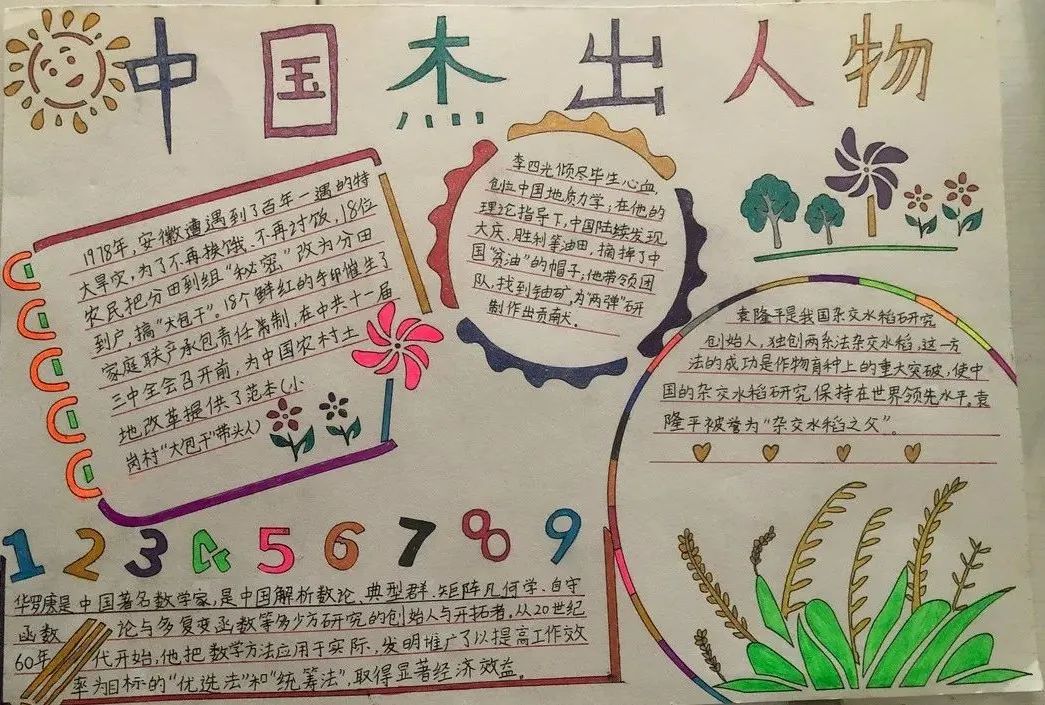 中国杰出人物
1978年,安徽遭遇到了百年一遇的特
大旱灾,为了不再挨饿、不再讨饭,18位
农民把分田到组"秘密"改为分田
到户,搞"大包干"。18个鲜红的手印催生了
家庭联产承包责任制,在中共十一届
三中全会召开前,为中国农村土
地改革提供了范本(小
岗村"大包干"带头人)
李四光倾尽毕生心血,
创立中国地质力学,在他的
理论指导下,中国陆续发现
大庆、胜利等油田,摘掉了中
国"贫油"的帽子;他带领团
队,找到铀矿,为"两弹"研
制作出贡献。
袁隆平是我国杂交水稻研究
创始人,独创两系法杂交水稻,这一方
法的成功是作物育种上的重大突破,使中
国的杂交水稻研究保持在世界领先水平。袁
隆平被誉为"杂交水稻之父"。
1 2 3 4 5 6 7 8 9
华罗庚是中国著名数学家,是中国解析数论、典型群、矩阵几何学、自守
函数论与多复变函数等多少方研究的创始人与开拓者,从20世纪
60年代开始,他把数学方法应用于实际,发明推广了以提高工作效
率为目标的"优选法"和"统筹法",取得显著经济效益。